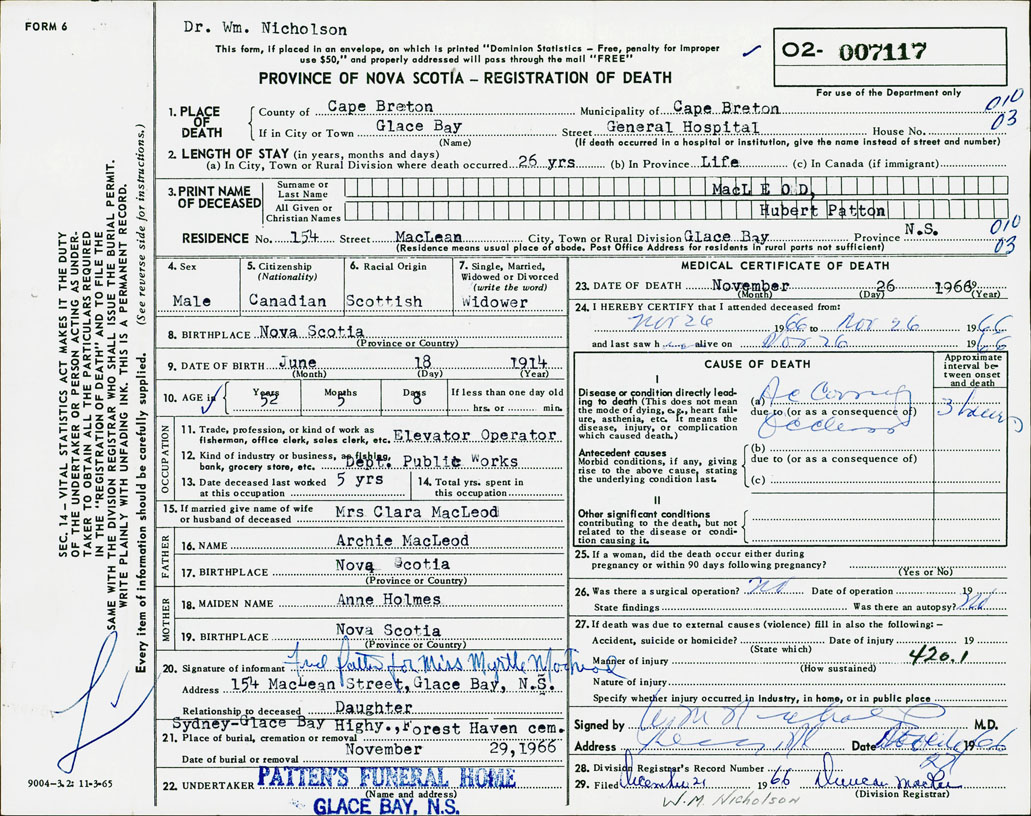 FORM 6
Dr. Wm. Nicholson
This form, if placed in an envelope, on which is printed "Dominion Statistics – Free, penalty for improper
use $50," and properly addressed will pass through the mail "FREE"
O2- 007117
For use of the Department only
PROVINCE OF NOVA SCOTIA – REGISTRATION OF DEATH
010
03
1. PLACE OF DEATH
County of Cape Breton Municipality of Cape Breton
If in City or Town Glace Bay Street General Hospital House No.
(Name) (If death occurred in a hospital or institution, give the name instead of street and number)
2. LENGTH OF STAY (in years, months and days)
(a) In City, Town or Rural Division where death occurred 26 yrs (b) In Province Life (c) In Canada (if immigrant)
3. PRINT NAME OF DECEASED
Surname or Last Name MacLEOD,
All Given or Christian Names Hubert Patton
RESIDENCE No. 154 Street MacLean City, Town or Rural Division Glace Bay Province N.S.
(Residence means usual place of abode. Post Office Address for residents in rural parts not sufficient)
010
03
4. Sex
Male
5. Citizenship
(Nationality)
Canadian
6. Racial Origin
Scottish
7. Single, Married,
Widowed or Divorced
(write the word)
Widower
8. BIRTHPLACE Nova Scotia
(Province or Country)
9. DATE OF BIRTH June 18 1914
(Month) (Day) (Year)
10. AGE in Years Months Days If less than one day old
52 5 8 hrs. or min.
OCCUPATION
11. Trade, profession, or kind of work as
fisherman, office clerk, sales clerk, etc. Elevator Operator
12. Kind of industry or business, as fishing,
bank, grocery store, etc. Dept. Public Works
13. Date deceased last worked
at this occupation 5 yrs
14. Total yrs. spent in
this occupation
15. If married give name of wife
or husband of deceased Mrs Clara MacLeod
FATHER
16. NAME Archie MacLeod
17. BIRTHPLACE Nova Scotia
(Province or Country)
MOTHER
18. MAIDEN NAME Anne Holmes
19. BIRTHPLACE Nova Scotia
(Province or Country)
20. Signature of informant for Miss Myrtle
Address 154 MacLean Street, Glace Bay, N.S.
Relationship to deceased Daughter
Sydney-Glace Bay Highy., Forest Haven cem.
21. Place of burial, cremation or removal
November 29, 1966
Date of burial or removal
22. UNDERTAKER PATTEN'S FUNERAL HOME
(Name and address)
GLACE BAY, N.S.
MEDICAL CERTIFICATE OF DEATH
23. DATE OF DEATH November 26 1966
(Month) (Day) (Year)
24. I HEREBY CERTIFY that I attended deceased from:
Nov 26 1966 to Nov 26 1966
and last saw h alive on Nov. 26 1966
CAUSE OF DEATH
Approximate
interval be-
tween onset
and death
I
Disease or condition directly lead-
ing to death (This does not mean
the mode of dying, e.g., heart fail-
ure, asthenia, etc. It means the
disease, injury, or complication
which caused death.)
(a)
due to (or as a consequence of)
3 hours
Antecedent causes
Morbid conditions, if any, giving
rise to the above cause, stating
the underlying condition last.
(b)
due to (or as a consequence of)
(c)
II
Other significant conditions
contributing to the death, but not
related to the disease or condi-
tion causing it.
25. If a woman, did the death occur either during
pregnancy or within 90 days following pregnancy?
(Yes or No)
26. Was there a surgical operation? No Date of operation 19
State findings Was there an autopsy? No
27. If death was due to external causes (violence) fill in also the following:–
Accident, suicide or homicide? Date of injury 19
(State which)
Manner of injury 420.1
(How sustained)
Nature of injury
Specify whether injury occurred in industry, in home, or in public place
Signed by M.D.
Address Date 1966
28. Division Registrar's Record Number
29. Filed December 21 1966 Duncan
(Division Registrar)
W.M. Nicholson
SEC. 14 – VITAL STATISTICS ACT MAKES IT THE DUTY
OF THE UNDERTAKER OR PERSON ACTING AS UNDER-
TAKER TO OBTAIN ALL THE PARTICULARS REQUIRED
IN THE "REGISTRATION OF DEATH" AND TO FILE THE
SAME WITH THE DIVISION REGISTRAR WHO SHALL ISSUE THE BURIAL PERMIT.
WRITE PLAINLY WITH UNFADING INK. THIS IS A PERMANENT RECORD.
Every item of information should be carefully supplied. (See reverse side for instructions.)
9004-3.2: 11-3-65